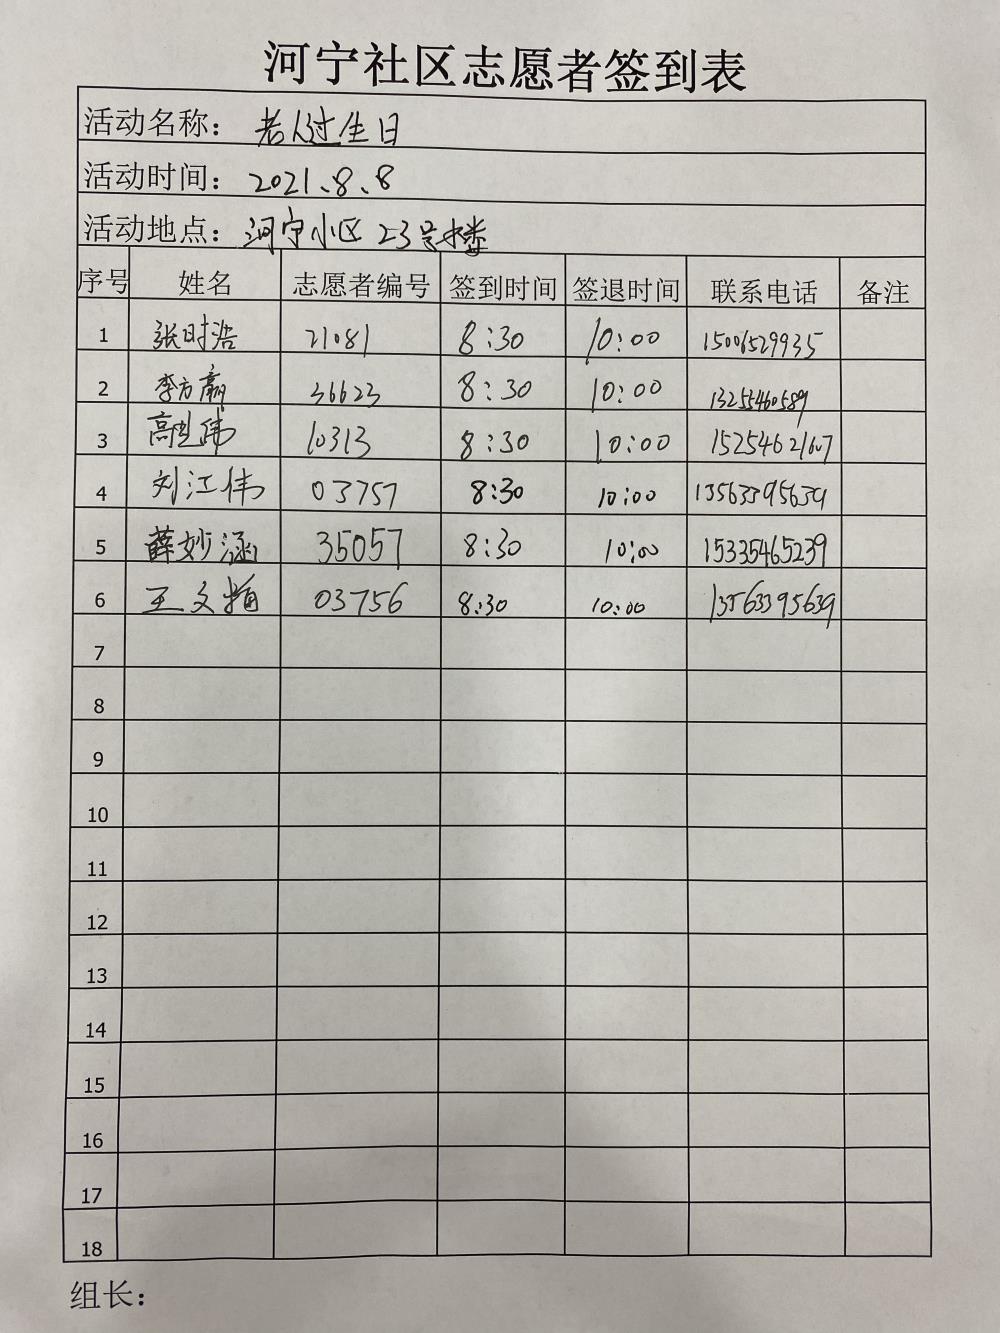 河宁社区志愿者签到表
活动名称：老人过生日
活动时间：2021.8.8
活动地点：河宁小区23号楼
序号 姓名 志愿者编号 签到时间 签退时间 联系电话 备注
1 张时浩 21081 8:30 10:00 15006529935
2 李方赢 36623 8:30 10:00 13255460589
3 高 伟 10313 8:30 10:00 15254621607
4 刘江伟 03757 8:30 10:00 13563395639
5 薛妙涵 35057 8:30 10:00 15335465239
6 王文 03756 8:30 10:00 13563395639
7
8
9
10
11
12
13
14
15
16
17
18
组长：